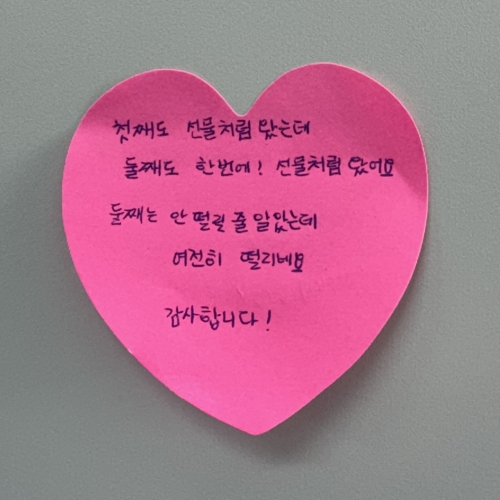 첫째도 선물처럼 왔는데
둘째도 한번에! 선물처럼 왔어요
둘째는 안 떨릴 줄 알았는데
여전히 떨리네요
감사합니다!